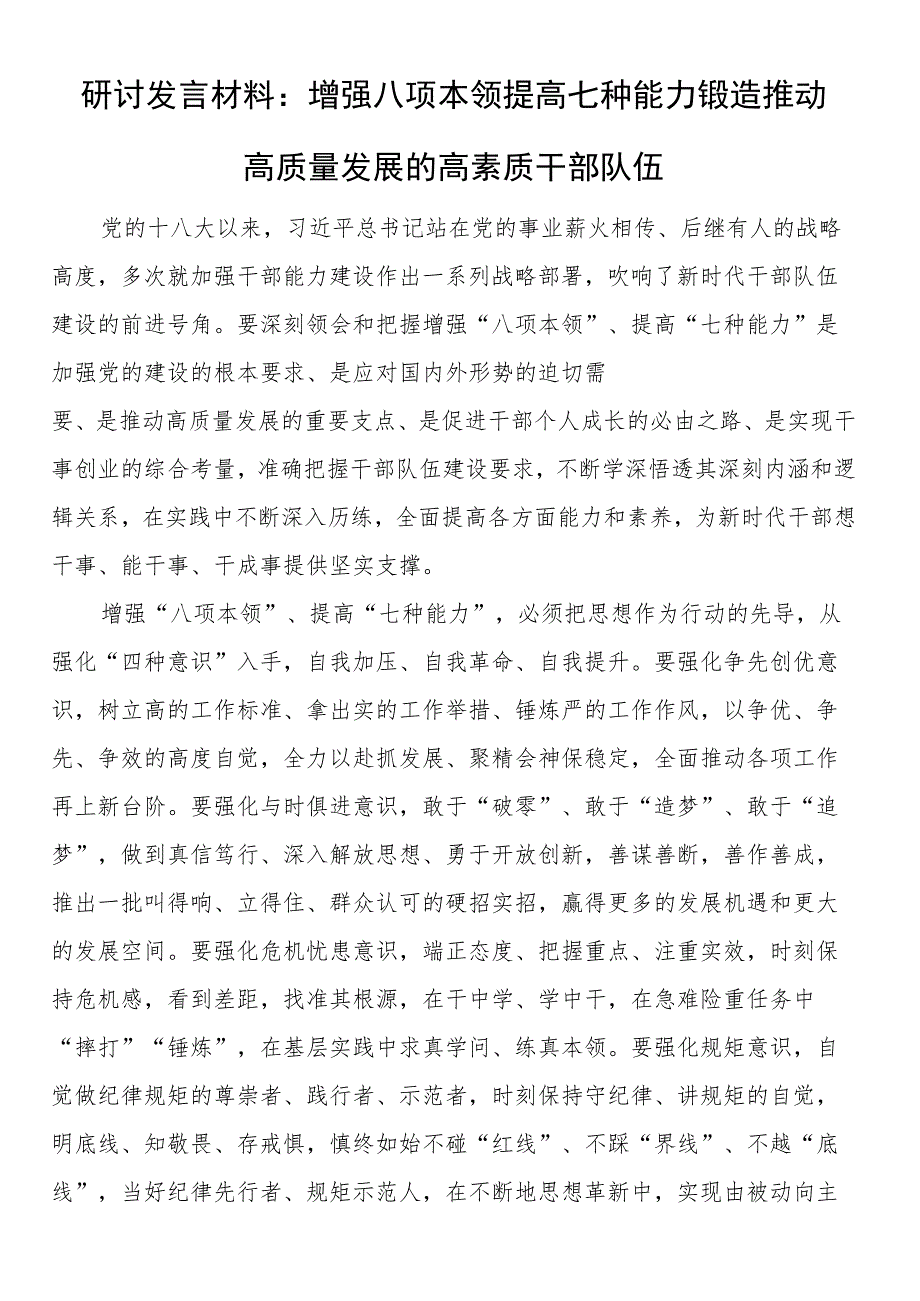 研讨发言材料：增强八项本领提高七种能力锻造推动
高质量发展的高素质干部队伍
党的十八大以来，习近平总书记站在党的事业薪火相传、后继有人的战略
高度，多次就加强干部能力建设作出一系列战略部署，吹响了新时代干部队伍
建设的前进号角。要深刻领会和把握增强“八项本领”、提高“七种能力”是
加强党的建设的根本要求、是应对国内外形势的迫切需
要、是推动高质量发展的重要支点、是促进干部个人成长的必由之路、是实现干
事创业的综合考量，准确把握干部队伍建设要求，不断学深悟透其深刻内涵和逻
辑关系，在实践中不断深入历练，全面提高各方面能力和素养，为新时代干部想
干事、能干事、干成事提供坚实支撑。
增强“八项本领”、提高“七种能力”，必须把思想作为行动的先导，从
强化“四种意识”入手，自我加压、自我革命、自我提升。要强化争先创优意
识，树立高的工作标准、拿出实的工作举措、锤炼严的工作作风，以争优、争
先、争效的高度自觉，全力以赴抓发展、聚精会神保稳定，全面推动各项工作
再上新台阶。要强化与时俱进意识，敢于“破零”、敢于“造梦”、敢于“追
梦”，做到真信笃行、深入解放思想、勇于开放创新，善谋善断，善作善成，
推出一批叫得响、立得住、群众认可的硬招实招，赢得更多的发展机遇和更大
的发展空间。要强化危机忧患意识，端正态度、把握重点、注重实效，时刻保
持危机感，看到差距，找准其根源，在干中学、学中干，在急难险重任务中
“摔打”“锤炼”，在基层实践中求真学问、练真本领。要强化规矩意识，自
觉做纪律规矩的尊崇者、践行者、示范者，时刻保持守纪律、讲规矩的自觉，
明底线、知敬畏、存戒惧，慎终如始不碰“红线”、不踩“界线”、不越“底
线”，当好纪律先行者、规矩示范人，在不断地思想革新中，实现由被动向主